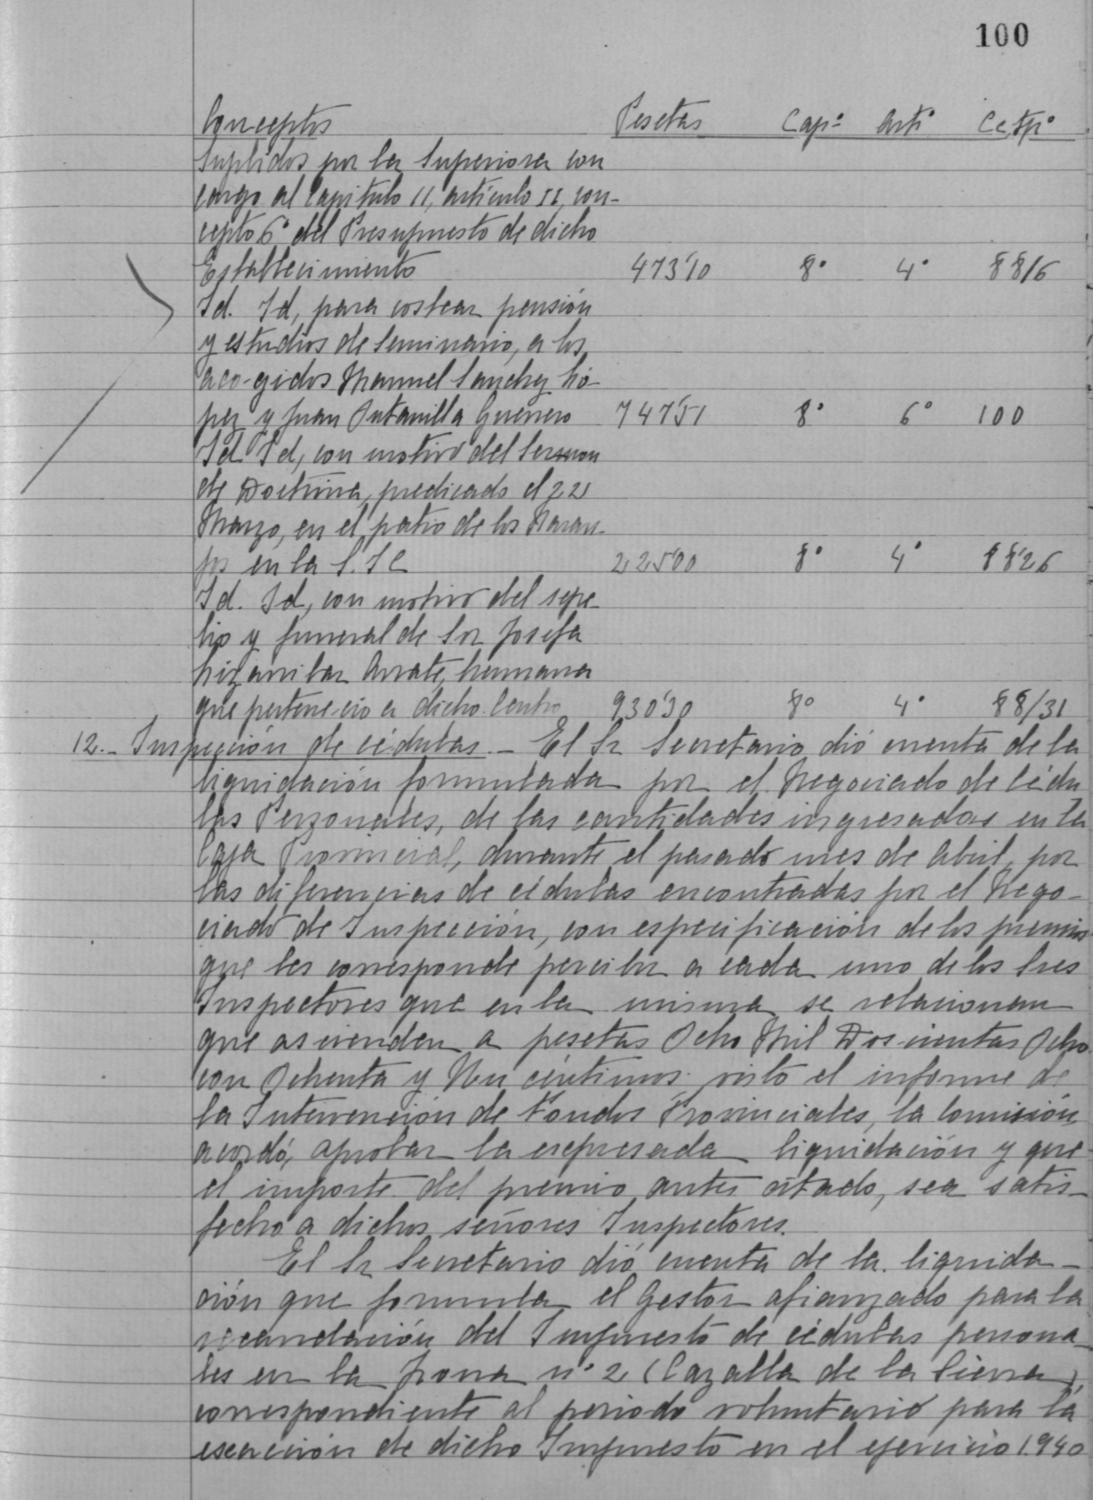 100
Conceptos Pesetas Cap.º Artº Cctpº
Suplidos por la Superiora con
cargo al Capitulo II, artículo II, con-
cepto 6º del Presupuesto de dicho
Establecimiento 473'10 8º 4º 88/6
Id. Id, para costear pensión
y estudios de Seminario, a los
aco-gidos Manuel Sanchez Ló-
pez y Juan Guerrero 747'51 8º 6º 100
Id Id, con motivo del Sermon
de Doctrina, predicado el 22
Marzo, en el patio de los Naran-
jos en la S. I C 225'00 8º 4º 88'26
Id. Id, con motivo del sepe-
lio y funeral de Sor Josefa
Arrate, hermana
que pertenecio a dicho Centro 930'30 8º 4º 88/31
12.- Inspección de cédulas.- El Sr Secretario dió cuenta de la
liquidación formulada por el Negociado de Cédu
las Personales, de las cantidades ingresadas en la
Caja Provincial, durante el pasado mes de Abril, por
las diferencias de cédulas encontradas por el Nego-
ciado de Inspección, con especificación de los premios
que les corresponde percibir a cada uno de los Sres
Inspectores que en la misma se relacionan
que ascienden a pesetas Ocho Mil Doscientas Ocho
con Ochenta y Un céntimos: visto el informe de
la Intervención de Fondos Provinciales, la Comisión
acordó, aprobar la expresada liquidación y que
el importe del premio antes citado, sea satis-
fecho a dichos señores Inspectores.
El Sr Secretario dió cuenta de la liquida-
ción que formula el Gestor afianzado para la
recaudación del Impuesto de cédulas persona
les en la zona nº 2 (Cazalla de la Sierra),
correspondiente al periodo voluntario para la
exacción de dicho Impuesto en el ejercicio 1.940